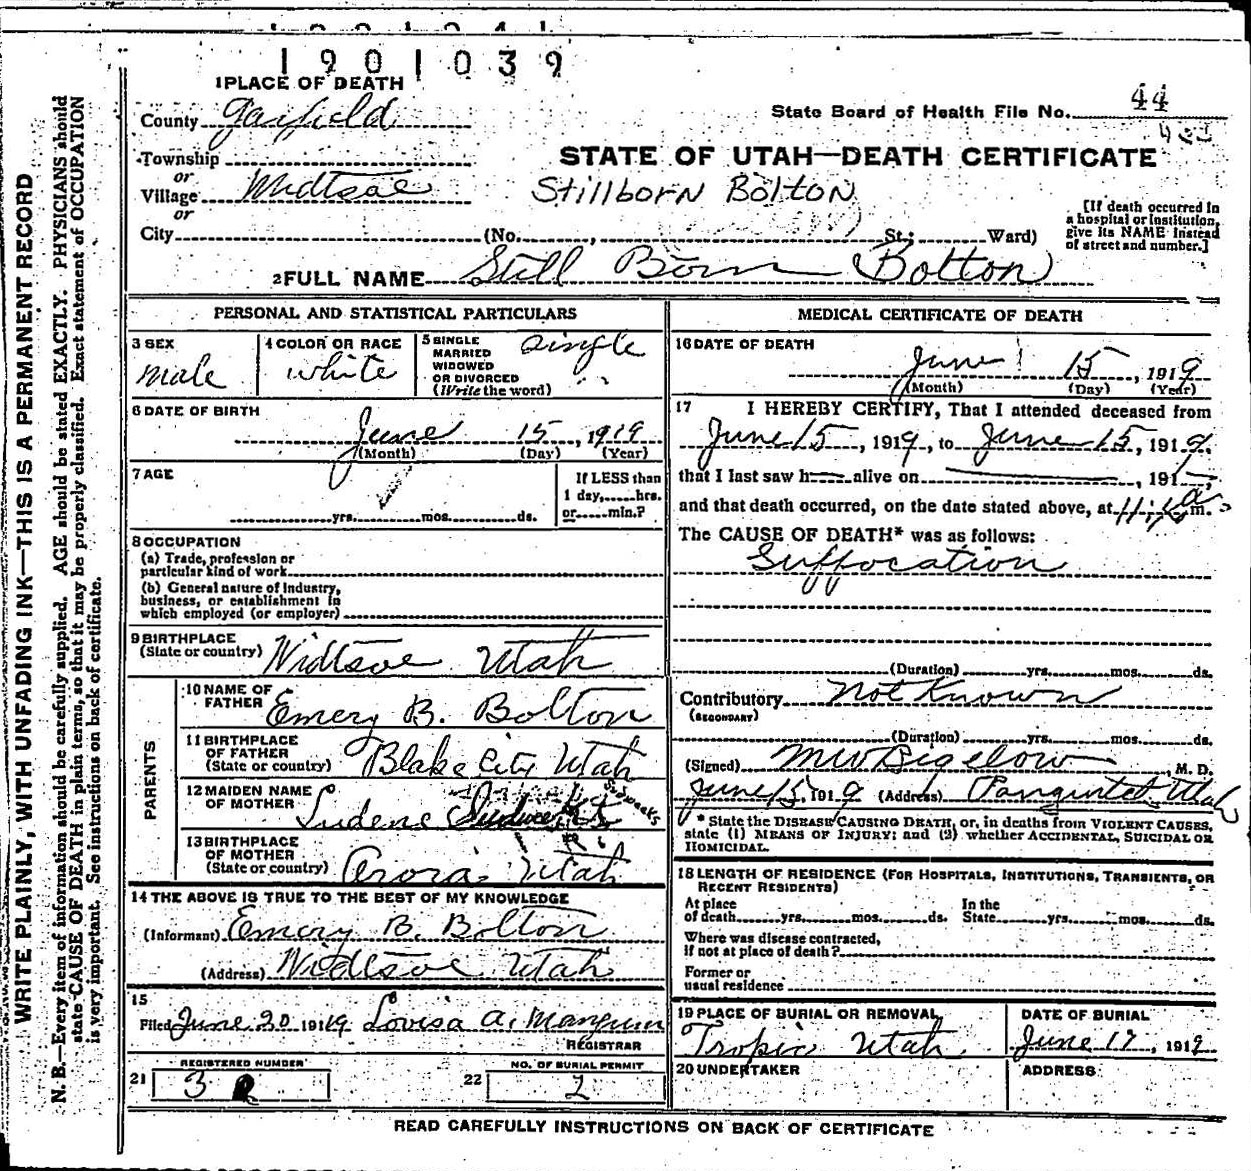 1901039
1 PLACE OF DEATH
County Garfield
State Board of Health File No. 44
Township
or
Village Widtsoe
or
City (No. , St.; Ward)
STATE OF UTAH—DEATH CERTIFICATE
Stillborn Bolton
[If death occurred in
a hospital or institution,
give its NAME instead
of street and number.]
2 FULL NAME Still Born (Bolton)
PERSONAL AND STATISTICAL PARTICULARS
3 SEX
male
4 COLOR OR RACE
white
5 SINGLE
MARRIED
WIDOWED
OR DIVORCED
(Write the word)
single
6 DATE OF BIRTH
June 15, 1919
(Month) (Day) (Year)
7 AGE
yrs. mos. ds.
If LESS than
1 day, hrs.
or min.?
8 OCCUPATION
(a) Trade, profession or
particular kind of work
(b) General nature of industry,
business, or establishment in
which employed (or employer)
9 BIRTHPLACE
(State or country) Widtsoe Utah
PARENTS
10 NAME OF
FATHER Emery B. Bolton
11 BIRTHPLACE
OF FATHER
(State or country) Blake City Utah
12 MAIDEN NAME
OF MOTHER Ludene Sudweeks
Sudweeks
13 BIRTHPLACE
OF MOTHER
(State or country) Arora Utah
14 THE ABOVE IS TRUE TO THE BEST OF MY KNOWLEDGE
(Informant) Emery B. Bolton
(Address) Widtsoe Utah
15
Filed June 20 1919 Lovisa A. Mangum
REGISTRAR
REGISTERED NUMBER
21 3
NO. OF BURIAL PERMIT
22 2
MEDICAL CERTIFICATE OF DEATH
16 DATE OF DEATH
June 15, 1919
(Month) (Day) (Year)
17 I HEREBY CERTIFY, That I attended deceased from
June 15, 1919, to June 15, 1919,
that I last saw h alive on , 191 ,
and that death occurred, on the date stated above, at a m.
The CAUSE OF DEATH* was as follows:
Suffocation
(Duration) yrs. mos. ds.
Contributory Not Known
(SECONDARY)
(Duration) yrs. mos. ds.
(Signed) M W Bigelow, M. D.
June 15, 1919 (Address) Panguitch Utah
* State the DISEASE CAUSING DEATH, or, in deaths from VIOLENT CAUSES,
state (1) MEANS OF INJURY; and (2) whether ACCIDENTAL, SUICIDAL OR
HOMICIDAL.
18 LENGTH OF RESIDENCE (FOR HOSPITALS, INSTITUTIONS, TRANSIENTS, OR
RECENT RESIDENTS)
At place
of death yrs. mos. ds.
In the
State yrs. mos. ds.
Where was disease contracted,
if not at place of death?
Former or
usual residence
19 PLACE OF BURIAL OR REMOVAL
Tropic Utah
DATE OF BURIAL
June 17, 1919
20 UNDERTAKER
ADDRESS
READ CAREFULLY INSTRUCTIONS ON BACK OF CERTIFICATE
WRITE PLAINLY, WITH UNFADING INK—THIS IS A PERMANENT RECORD
N. B.—Every item of information should be carefully supplied. AGE should be stated EXACTLY. PHYSICIANS should
state CAUSE OF DEATH in plain terms, so that it may be properly classified. Exact statement of OCCUPATION
is very important. See instructions on back of certificate.